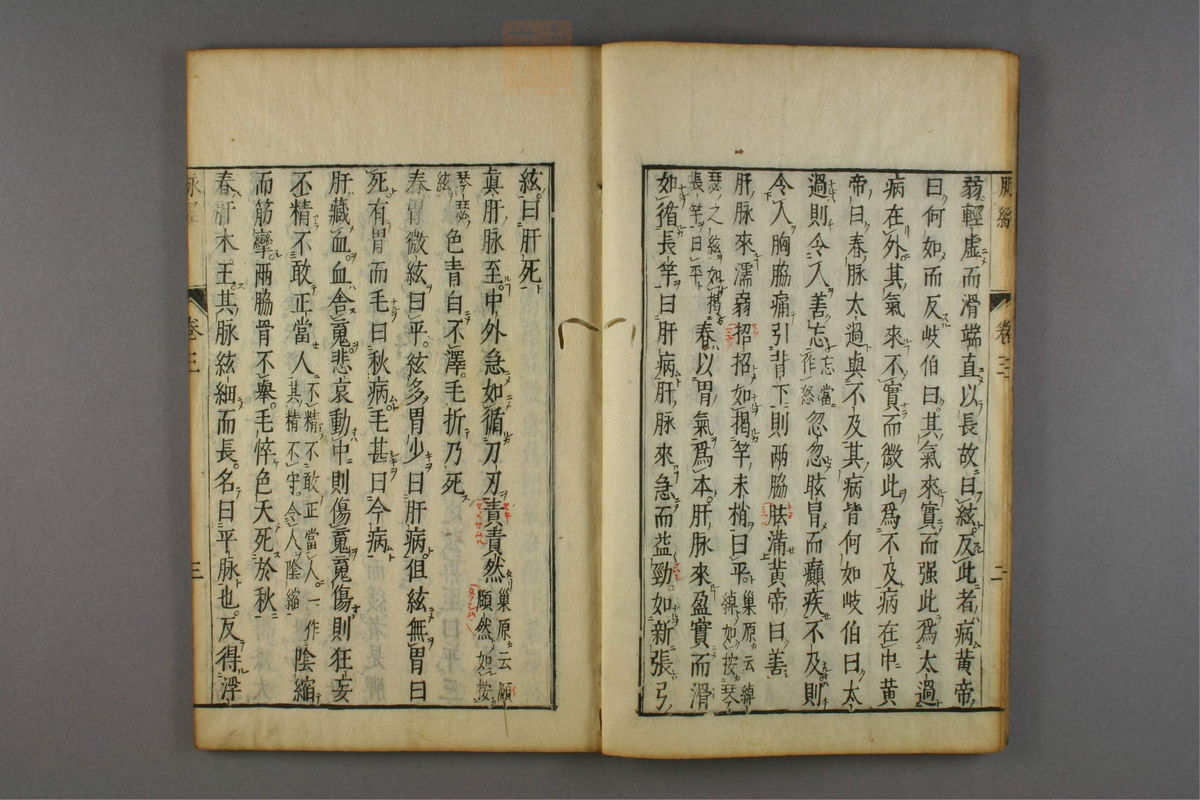 脉經
卷三
二
弱輕虛而滑端直以長故曰絃反此者病黄帝
曰何如而反歧伯曰其氣來實而强此爲太過
病在外其氣來不實而微此爲不及病在中黄
帝曰春脉太過與不及其病皆何如歧伯曰太
過則令人善忘忘當作怒忽忽眩冒而癲疾不及則
令人胸脇痛引背下則兩脇胠滿黄帝曰善
肝脉來濡弱招招如揭竿末梢曰平巢原云綽綽如按琴
瑟之絃如揭長竿曰平春以胃氣爲本肝脉來盈實而滑
如循長竿曰肝病肝脉來急而益勁如新張弓
絃曰肝死
眞肝脉至中外急如循刀刃責責然巢原云賾賾然如按
琴瑟絃色青白不澤毛折乃死
春胃微絃曰平絃多胃少曰肝病但絃無胃曰
死有胃而毛曰秋病毛甚曰今病
肝藏血血舍䰟悲哀動中則傷䰟䰟傷則狂妄
不精不敢正當人不精不敢正當人一作其精不守令人陰縮陰縮
而筋攣兩脇骨不舉毛悴色夭死於秋
春肝木王其脉絃細而長名曰平脉也反得浮
卷三
三